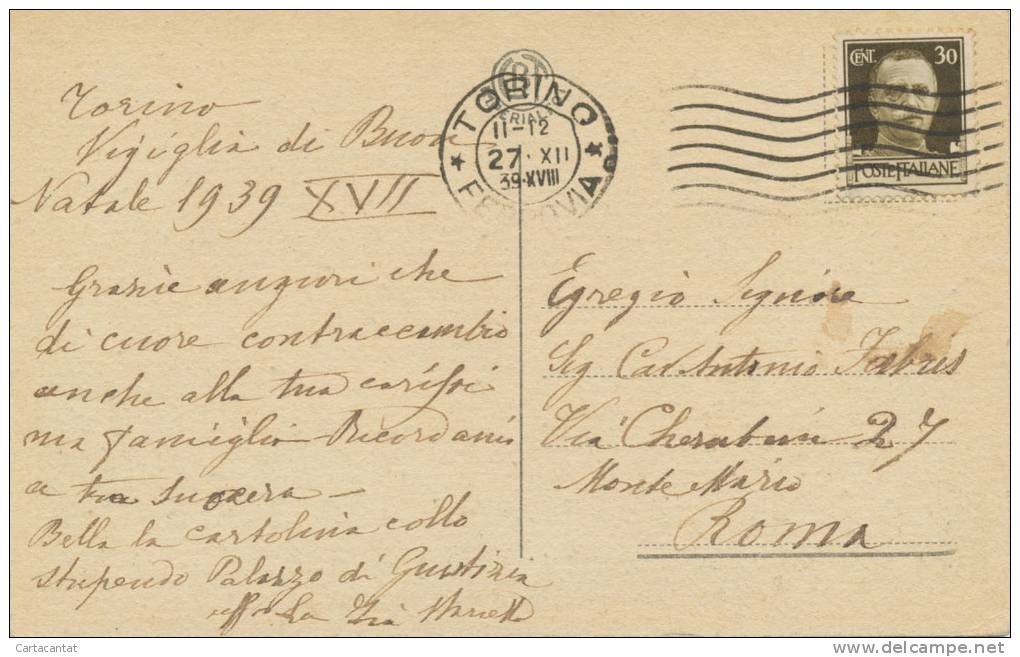 Torino
Vigiglia di Buon
Natale 1939 XVII
Grazie auguri che
di cuore contraccambio
anche alla tua carissi
ma famiglia Ricordami
a tua suocera -
Bella la cartolina collo
stupendo Palazzo di Giustizia
aff La Zia
TORINO
FERROVIA
11-12
27 XII
39·XVIII
CENT. 30
POSTE ITALIANE
Egregio Signore
Sig Cav Antonio Fabres
Via Cherubini 27
Monte Mario
Roma
Cartacantat
delcampe.net